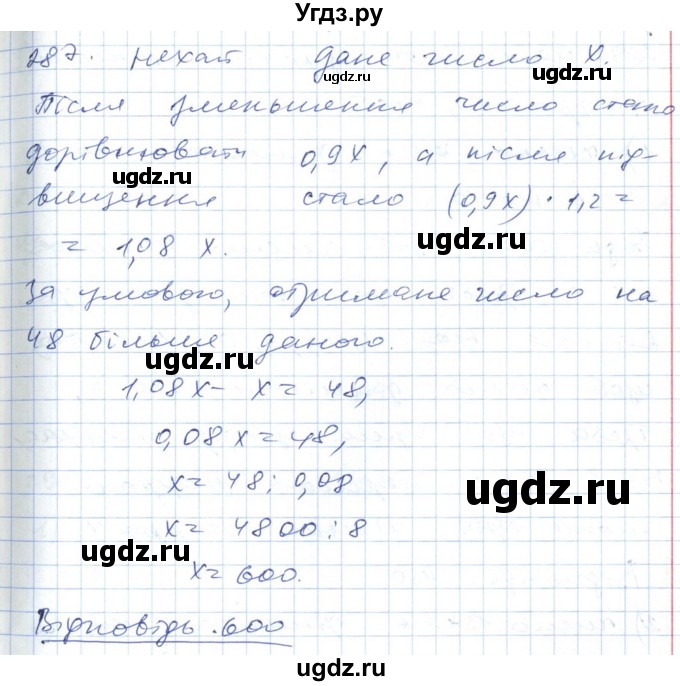 Угдз.ру
287. Нехай дане число x.
ugdz.ru ugdz.ru
Після зменьшення число стало
дорівнювати 0,9x, а після під-
ugdz.ru
вищення стало (0,9x) · 1,2 =
= 1,08 x.
ugdz.ru
За умовою, отримане число на
48 більше даного.
ugdz.ru
1,08x - x = 48,
0,08x = 48,
x = 48 : 0,08
ugdz.ru
x = 4800 : 8
ugdz.ru
x = 600.
Відповідь. 600
ugdz.ru
ugdz.ru